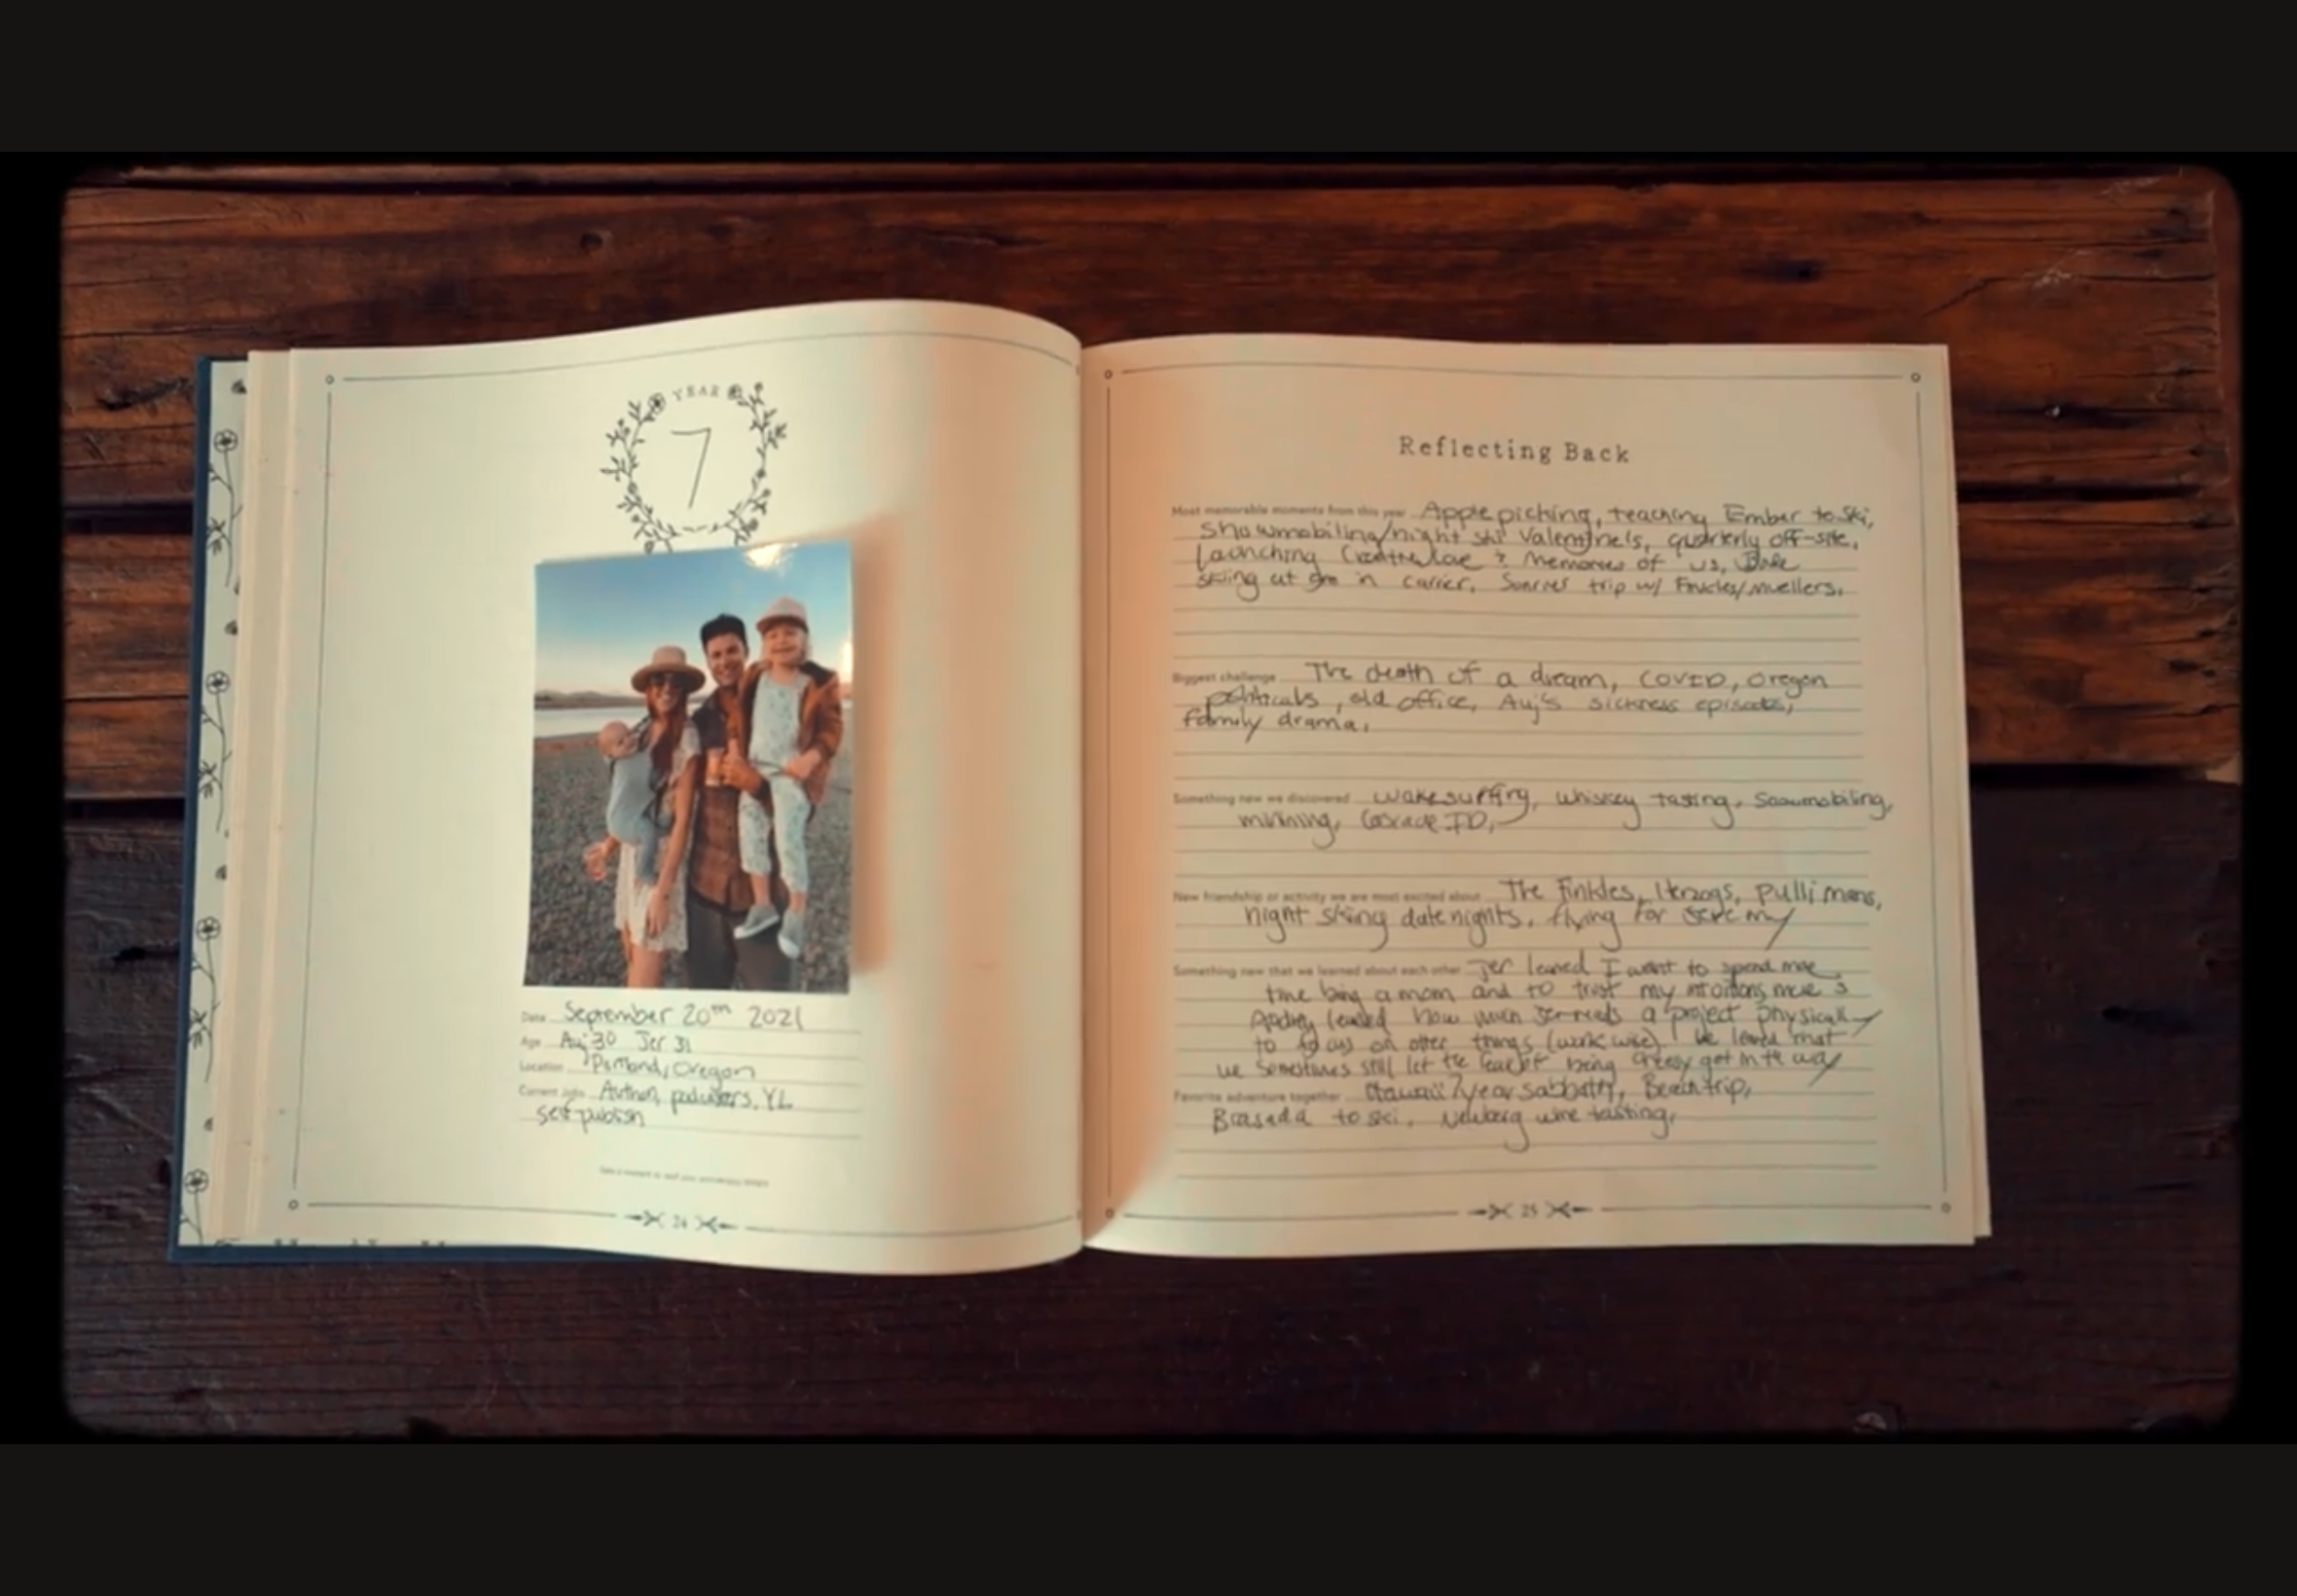 YEAR
7
Date September 20th 2021
Age Auj 30 Jer 31
Location Portland, Oregon
Current jobs Author, podcasters, YL
self-publish
24
Reflecting Back
Most memorable moments from this year Apple picking, teaching Ember to ski,
Snowmobiling/night ski Valentine's, quarterly off-site,
launching & Memories of us,
skiing at in carrier. Sunriver trip w/
Biggest challenge The death of a dream, COVID, Oregon
politicals, old office, Auj's sickness episodes,
family drama.
Something new we discovered wakesurfing, whiskey tasting, Snowmobiling,
Cascade ID,
New friendship or activity we are most excited about The Finkles, Herzogs, Pullimans,
night skiing date nights, flying for Jeremy
Something new that we learned about each other Jer learned I want to spend more
time being a mom and to trust my intuitions more &
Audrey learned how much Jer needs a project physically
to focus on other things (work wise). We learned that
we sometimes still let the fear of being cheesy get in the way
Favorite adventure together Hawaii 7 year sabbath, trip,
Brasada to ski, Newberg wine tasting,
25